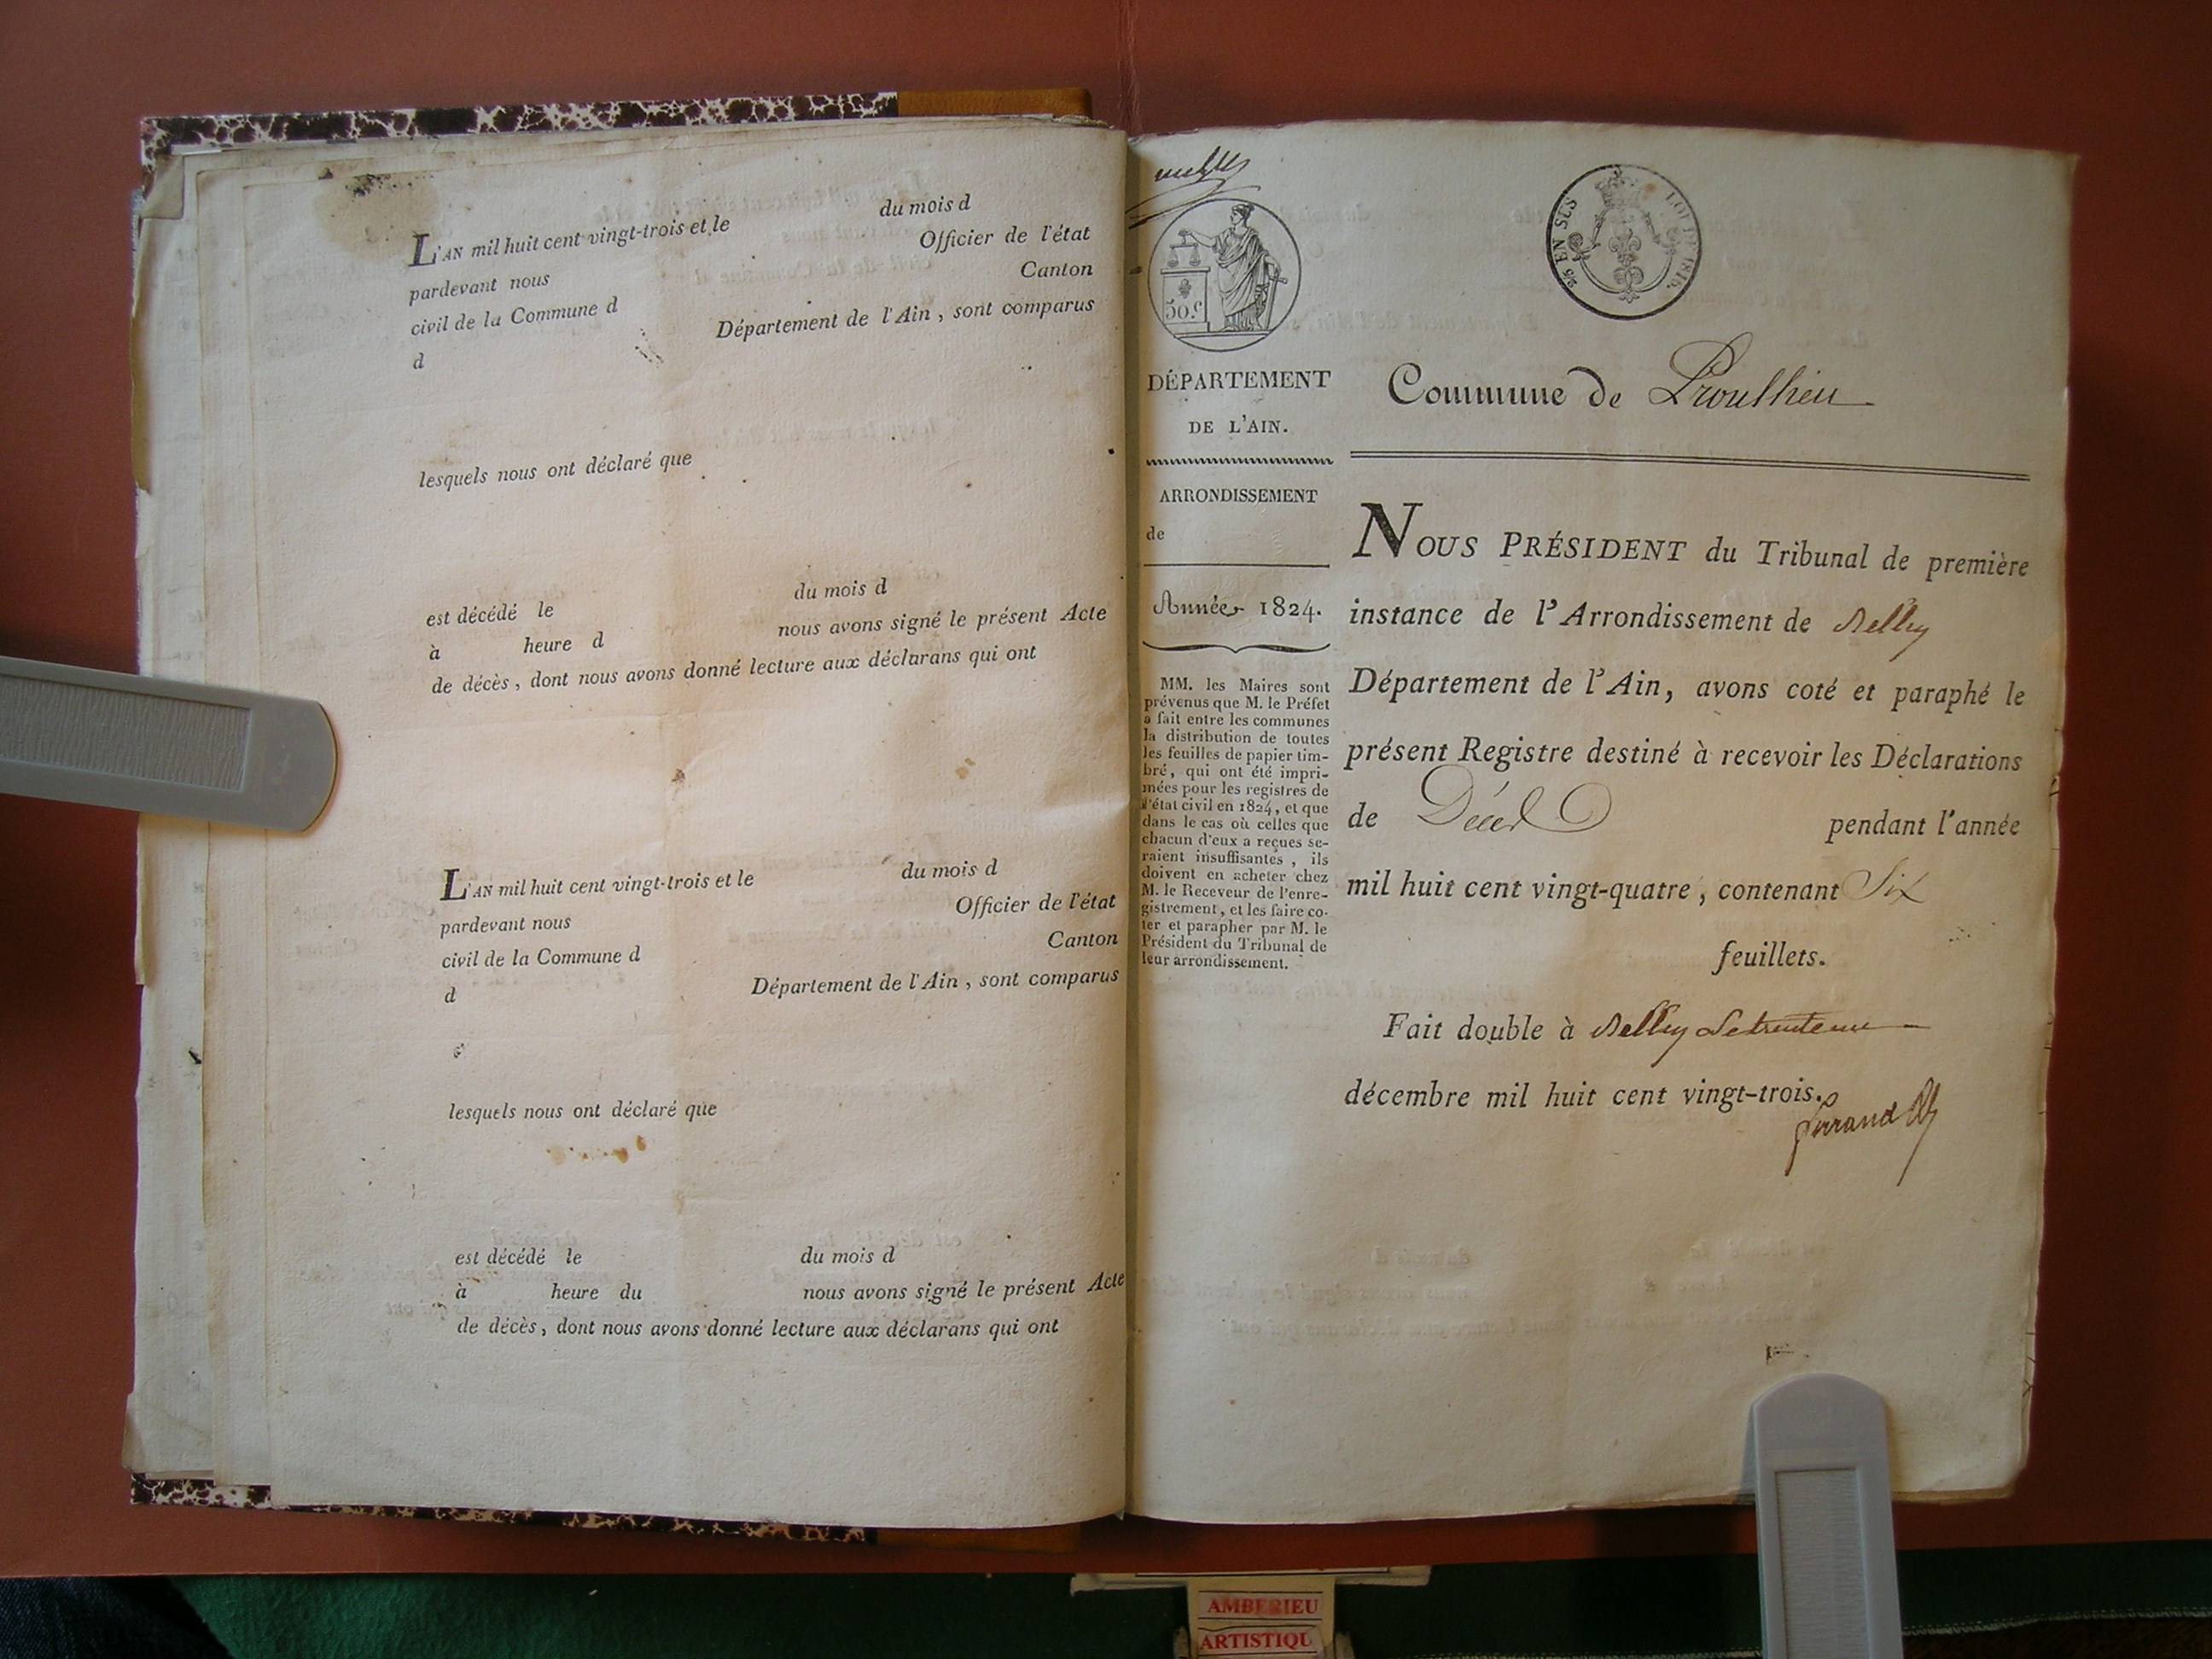 L'AN mil huit cent vingt-trois et le du mois d
pardevant nous Officier de l'état
civil de la Commune d Canton
d Département de l'Ain, sont comparus
lesquels nous ont déclaré que
est décédé le du mois d
à heure d nous avons signé le présent Acte
de décès, dont nous avons donné lecture aux déclarans qui ont
L'AN mil huit cent vingt-trois et le du mois d
pardevant nous Officier de l'état
civil de la Commune d Canton
d Département de l'Ain, sont comparus
lesquels nous ont déclaré que
est décédé le du mois d
à heure du nous avons signé le présent Acte
de décès, dont nous avons donné lecture aux déclarans qui ont
50.c
DÉPARTEMENT
DE L'AIN.
ARRONDISSEMENT
de
Année 1824.
MM. les Maires sont
prévenus que M. le Préfet
a fait entre les communes
la distribution de toutes
les feuilles de papier tim-
bré, qui ont été impri-
mées pour les registres de
l'état civil en 1824, et que
dans le cas où celles que
chacun d'eux a reçues se-
raient insuffisantes, ils
doivent en acheter chez
M. le Receveur de l'enre-
gistrement, et les faire co-
ter et parapher par M. le
Président du Tribunal de
leur arrondissement.
EN SUS LOI DE 1816.
Commune de Proulhieu
NOUS PRÉSIDENT du Tribunal de première
instance de l'Arrondissement de Belley
Département de l'Ain, avons coté et paraphé le
présent Registre destiné à recevoir les Déclarations
de Décès pendant l'année
mil huit cent vingt-quatre, contenant Six
feuillets.
Fait double à Belley Le trente un
décembre mil huit cent vingt-trois.
AMBERIEU
ARTISTIQU